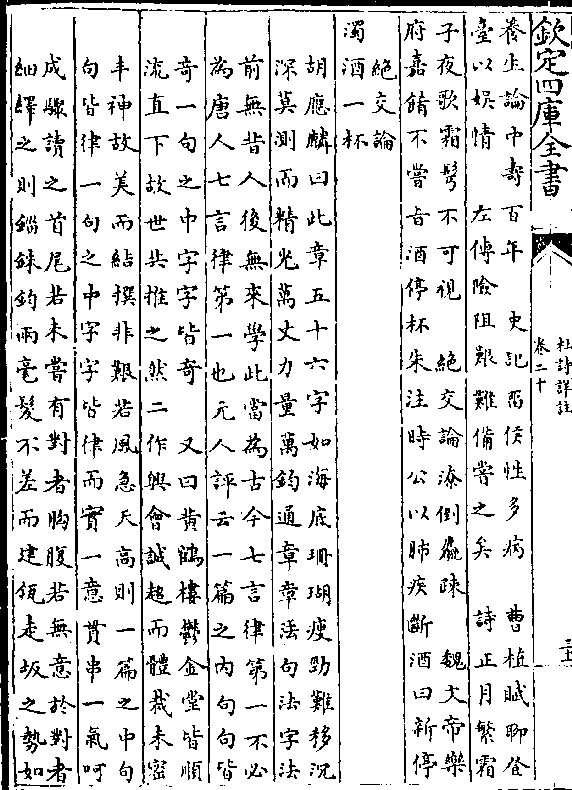 欽定四庫全書
杜詩詳註
卷二十
養生論中壽百年　史記留侯性多病　曹植賦聊登
臺以娛情　左傳險阻艱難備嘗之矣　詩正月繁霜
子夜歌霜鬢不可視　絶交論潦倒麤疎　魏文帝樂
府嘉餚不嘗旨酒停杯朱注時公以肺疾斷酒曰新停
絶交論
濁酒一杯
胡應麟曰此章五十六字如海底珊瑚瘦勁難移沉
深莫測而精光萬丈力量萬鈞通章章法句法字法
前無昔人後無來學此當為古今七言律第一不必
為唐人七言律第一也元人評云一篇之内句句皆
竒一句之中字字皆竒　又曰黄鶴樓鬱金堂皆順
流直下故世共推之然二作興會誠超而體裁未密
丰神故美而結撰非艱若風急天高則一篇之中句
句皆律一句之中字字皆律而實一意貫串一氣呵
成驟讀之首尾若未嘗有對者胸腹若無意於對者
細繹之則錙銖鈞兩毫髮不差而建瓴走坂之勢如